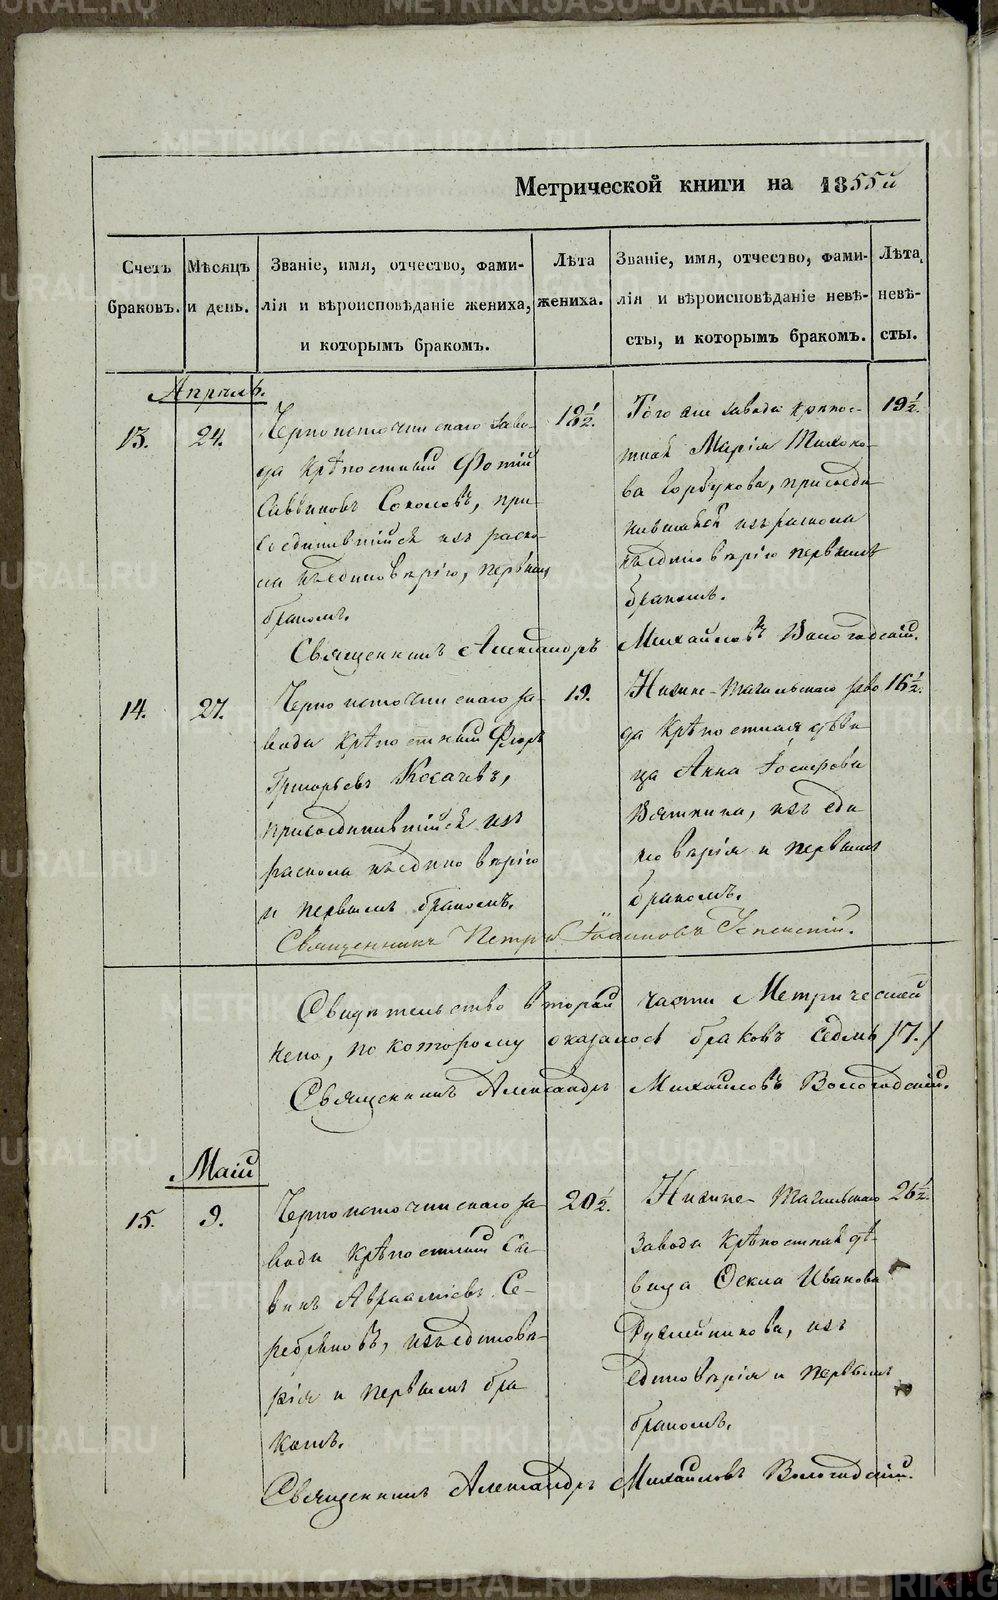 Метрической книги на 1855й
Счетъ браковъ.
Мѣсяцъ и день.
Званіе, имя, отчество, фами-
лія и вѣроисповѣданіе жениха,
и которымъ бракомъ.
Лѣта
жениха.
Званіе, имя, отчество, фами-
лія и вѣроисповѣданіе невѣ-
сты, и которымъ бракомъ.
Лѣта
невѣ-
сты.
Апрѣль.
13.
24.
Черноисточинскаго заво-
да крѣпостный Фотій
Саввиновъ Соколовъ, при-
соединившійся изъ раско-
ла къ единовѣрію, первымъ
бракомъ.
18½.
Того же завода крѣпос-
тная Марія
ва Горбунова, присоеди-
нившаяся изъ раскола
къ единовѣрію первымъ
бракомъ.
19½.
Священникъ Александръ Михайловъ Вологодскій.
14.
27.
Черноисточинскаго за-
вода крѣпостный Флоръ
Григорьевъ Косачевъ,
присоединившійся изъ
раскола къ единовѣрію
и первымъ бракомъ.
19.
Нижне-Тагильскаго заво
да крѣпостная дѣви
ца Анна Іосифова
Вяткина, изъ еди
новѣрія и первымъ
бракомъ.
16½.
Священникъ Петръ Іоанновъ Успенскій.
Свидѣтельство второй части Метрической
по которому оказалось браковъ седмь /7./
Священникъ Александръ Михайловъ Вологодскій.
Маій
15.
9.
Черноисточинскаго за-
вода крѣпостный Са-
винъ Аврааміевъ Се-
ребряковъ, изъ единовѣ-
рія и первымъ бра
комъ.
20½.
Нижне-Тагильскаго
завода крѣпостная дѣ-
вица Ѳекла Иванова
изъ
единовѣрія и первымъ
бракомъ.
26½.
Священникъ Александръ Михайловъ Вологодскій.
METRIKI.GASO-URAL.RU